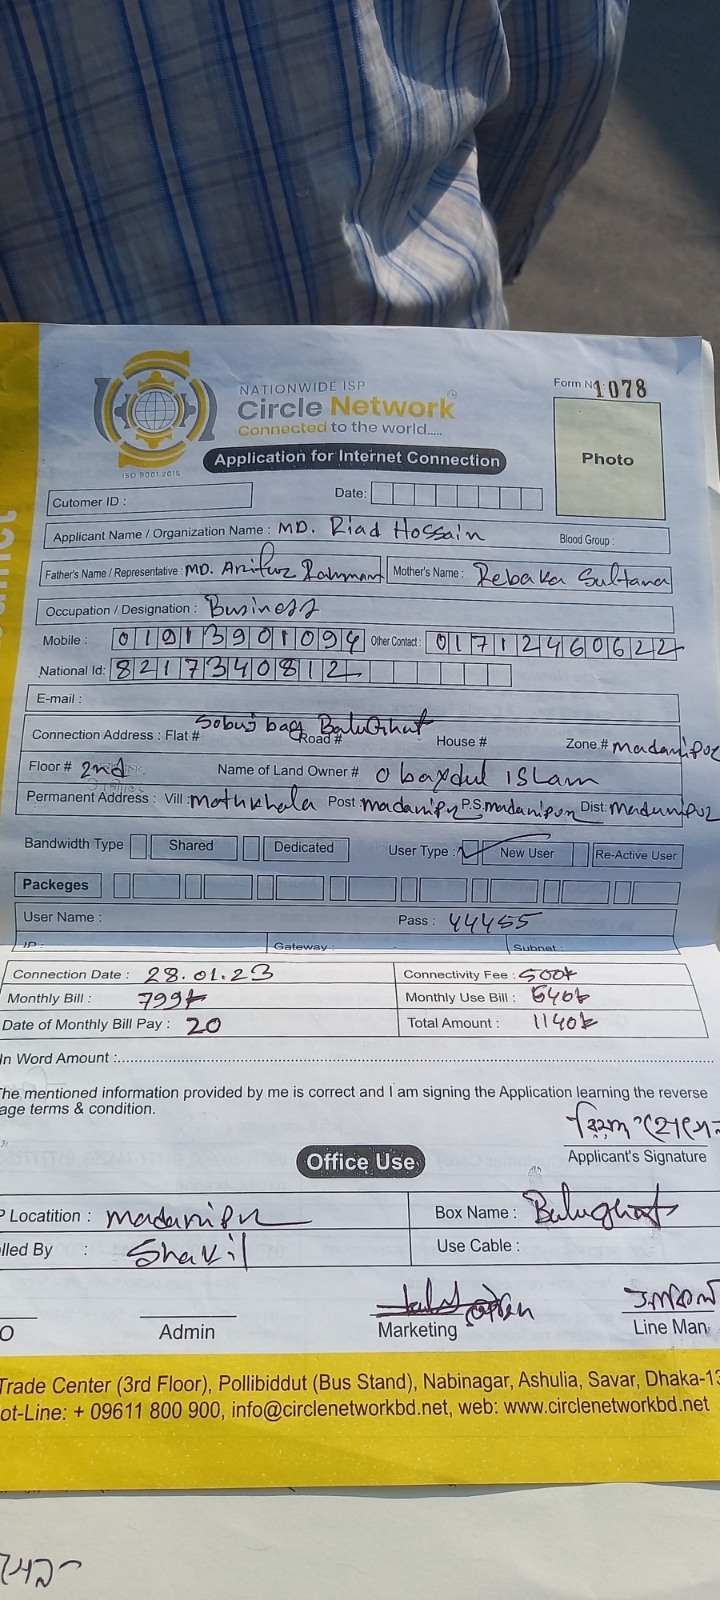 NATIONWIDE ISP
Circle Network
Connected to the world.....
ISO 9001:2015
Form No 1078
Photo
Application for Internet Connection
Cutomer ID :
Date:
Applicant Name / Organization Name : MD. Riad Hossain Blood Group :
Father's Name / Representative : MD. Arifur Rahman Mother's Name : Rebaka Sultana
Occupation / Designation : Business
Mobile : 01913901094 Other Contact : 01712460622
National Id: 8217340812
E-mail :
Connection Address : Flat # Sobuj bag BaluGhat Road # House # Zone # madaripur
Floor # 2nd Name of Land Owner # Obaydul iSLam
Permanent Address : Vill : mothkhala Post madaripur P.S. madaripur Dist: madaripur
Bandwidth Type Shared Dedicated User Type : New User Re-Active User
Packeges
User Name : Pass : 44455
IP : Gateway : Subnet :
Connection Date : 28.01.23 Connectivity Fee : 500
Monthly Bill : 799 Monthly Use Bill : 640
Date of Monthly Bill Pay : 20 Total Amount : 1140
In Word Amount :
he mentioned information provided by me is correct and I am signing the Application learning the reverse
age terms & condition.
Applicant's Signature
Office Use
Locatition : madaripur Box Name : Balughat
lled By : Shakil Use Cable :
O Admin Marketing Line Man
Trade Center (3rd Floor), Pollibiddut (Bus Stand), Nabinagar, Ashulia, Savar, Dhaka-13
ot-Line: + 09611 800 900, info@circlenetworkbd.net, web: www.circlenetworkbd.net